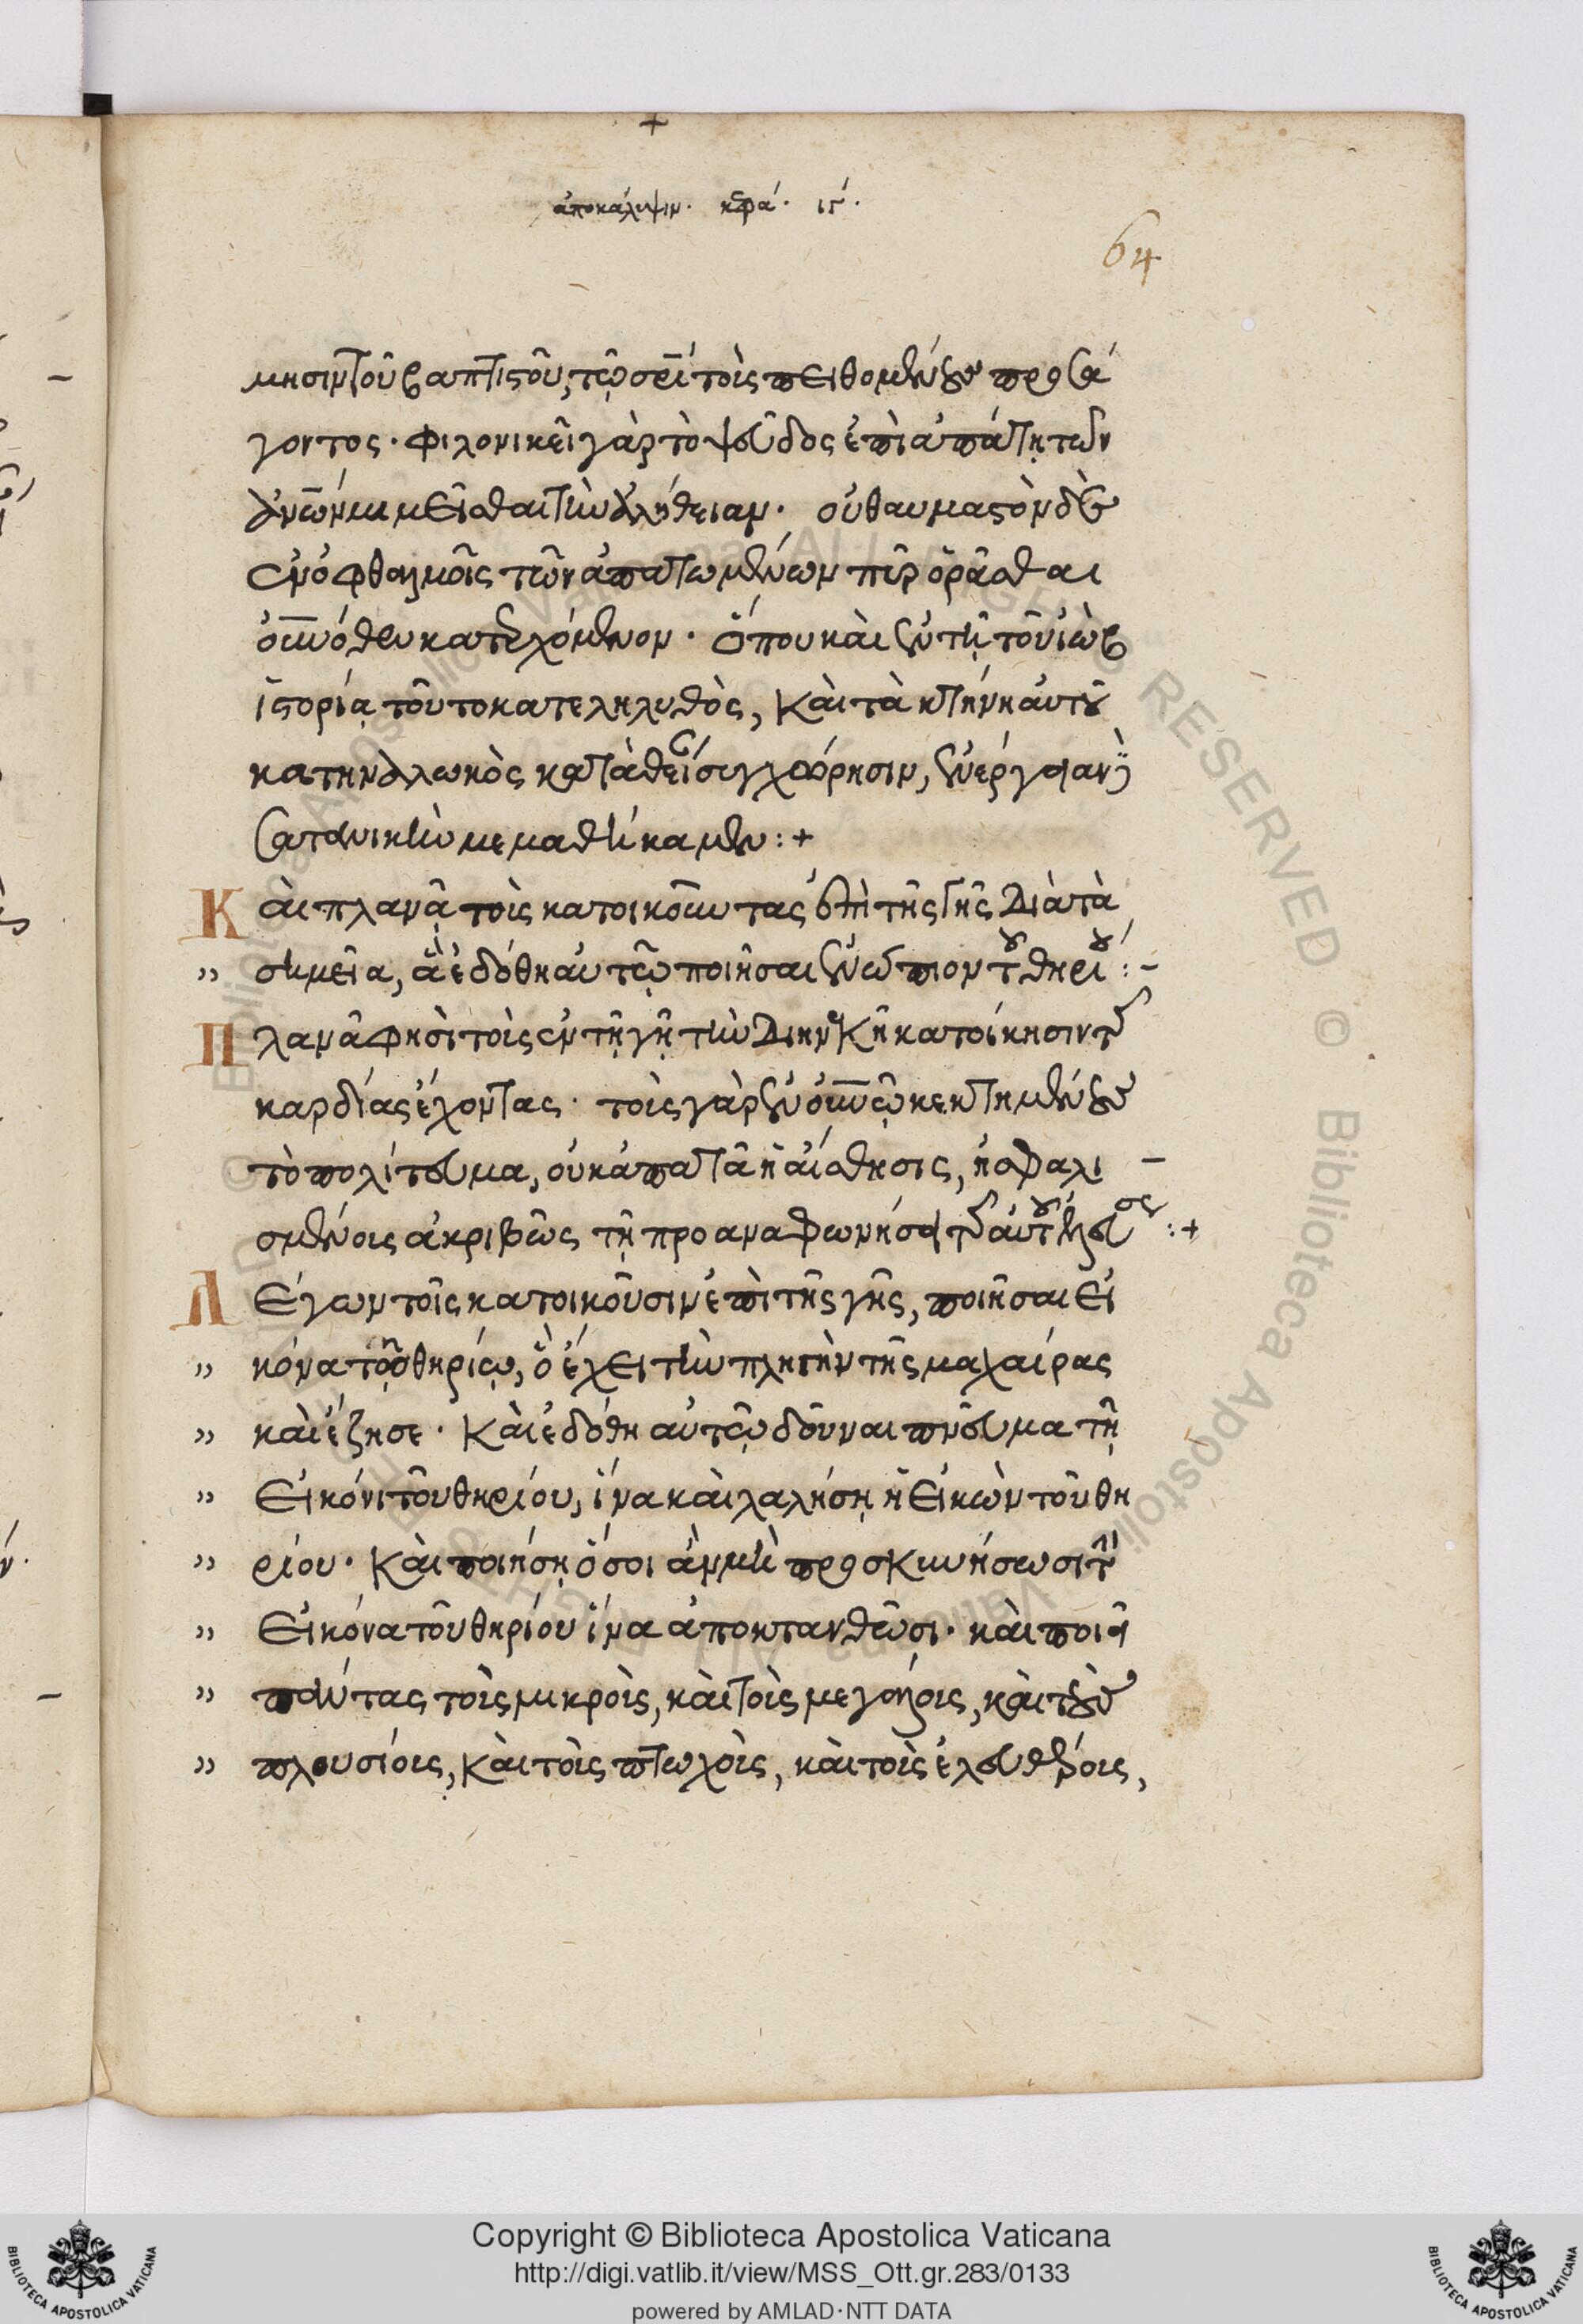 +
ἀποκάλυψιν. κεφα´. ιγ´.
64
μησιν τοῦ βαπτιστοῦ, τῷ σρι τοῖς πειθομένους προσά
γοντος. φιλονικεῖ γὰρ τὸ ψεῦδος ἐπὶ ἀπάτῃ τῶν
ἀνων μιμεῖσθαι τὴν ἀλήθειαν. οὐ θαυμαστὸν δὲ
ἐν ὀφθαλμοῖς τῶν ἀπατωμένων πῦρ ὁρᾶσθαι
οὐνόθεν κατερχόμενον. ὅπου καὶ ἐν τῇ τοῦ ἰὼβ
ἱστορίᾳ τοῦτο κατεληλυθὸς, καὶ τὰ κτήνη αὐτοῦ
κατηναλωκὸς κατὰ θείαν συγχώρησιν, ἐνέργειαν
σατανικὴν μεμαθήκαμεν :+
Καὶ πλανᾷ τοῖς κατοικοῦντας ἐπὶ τῆς γῆς διὰ τὰ
» σημεῖα, ἃ ἐδόθη αὐτῷ ποιῆσαι ἐνώπιον τοῦ θηρίου :-
Πλανᾷ φησὶ τοῖς ἐν τῇ γῇ τὴν διηνεκῆ κατοίκησιν τῆς
καρδίας ἔχοντας. τοῖς γὰρ ἐν οὐνῷ κεκτημένους
τὸ πολίτευμα, οὐκ ἀπατᾷ ἡ αἴσθησις, ἠσφαλι -
σμένοις ἀκριβῶς τῇ προαναφωνήσει τῆς αὐτοῦ ἐλεύσεως :+
Λέγων τοῖς κατοικοῦσιν ἐπὶ τῆς γῆς, ποιῆσαι εἰ
» κόνα τῷ θηρίῳ, ὃ ἔχει τὴν πληγὴν τῆς μαχαίρας
» καὶ ἔζησε. Καὶ ἐδόθη αὐτῷ δοῦναι πνεῦμα τῇ
» εἰκόνι τοῦ θηρίου, ἵνα καὶ λαλήσῃ ἡ εἰκὼν τοῦ θη
» ρίου. Καὶ ποιήσῃ ὅσοι ἀν μὴ προσκυνήσωσι τὴν
» εἰκόνα τοῦ θηρίου ἵνα ἀποκτανθῶσι. καὶ ποιεῖ
» πάντας τοὶς μικροὶς, καὶ τοὶς μεγάλοις, καὶ τοὺς
» πλουσίοις, Καὶ τοὶς πτωχοὶς, καὶ τοὶς ἐλευθέροις,
Copyright © Biblioteca Apostolica Vaticana
http://digi.vatlib.it/view/MSS_Ott.gr.283/0133
powered by AMLAD·NTT DATA